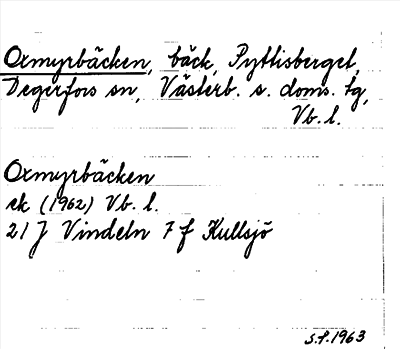 Oxmyrbäcken, bäck, Pyttisberget,
Degerfors sn, Västerb. s. doms. tg,
Vb. l.
Oxmyrbäcken
ek (1962) Vb. l.
21 J Vindeln 7 f Kullsjö
S.P. 1963